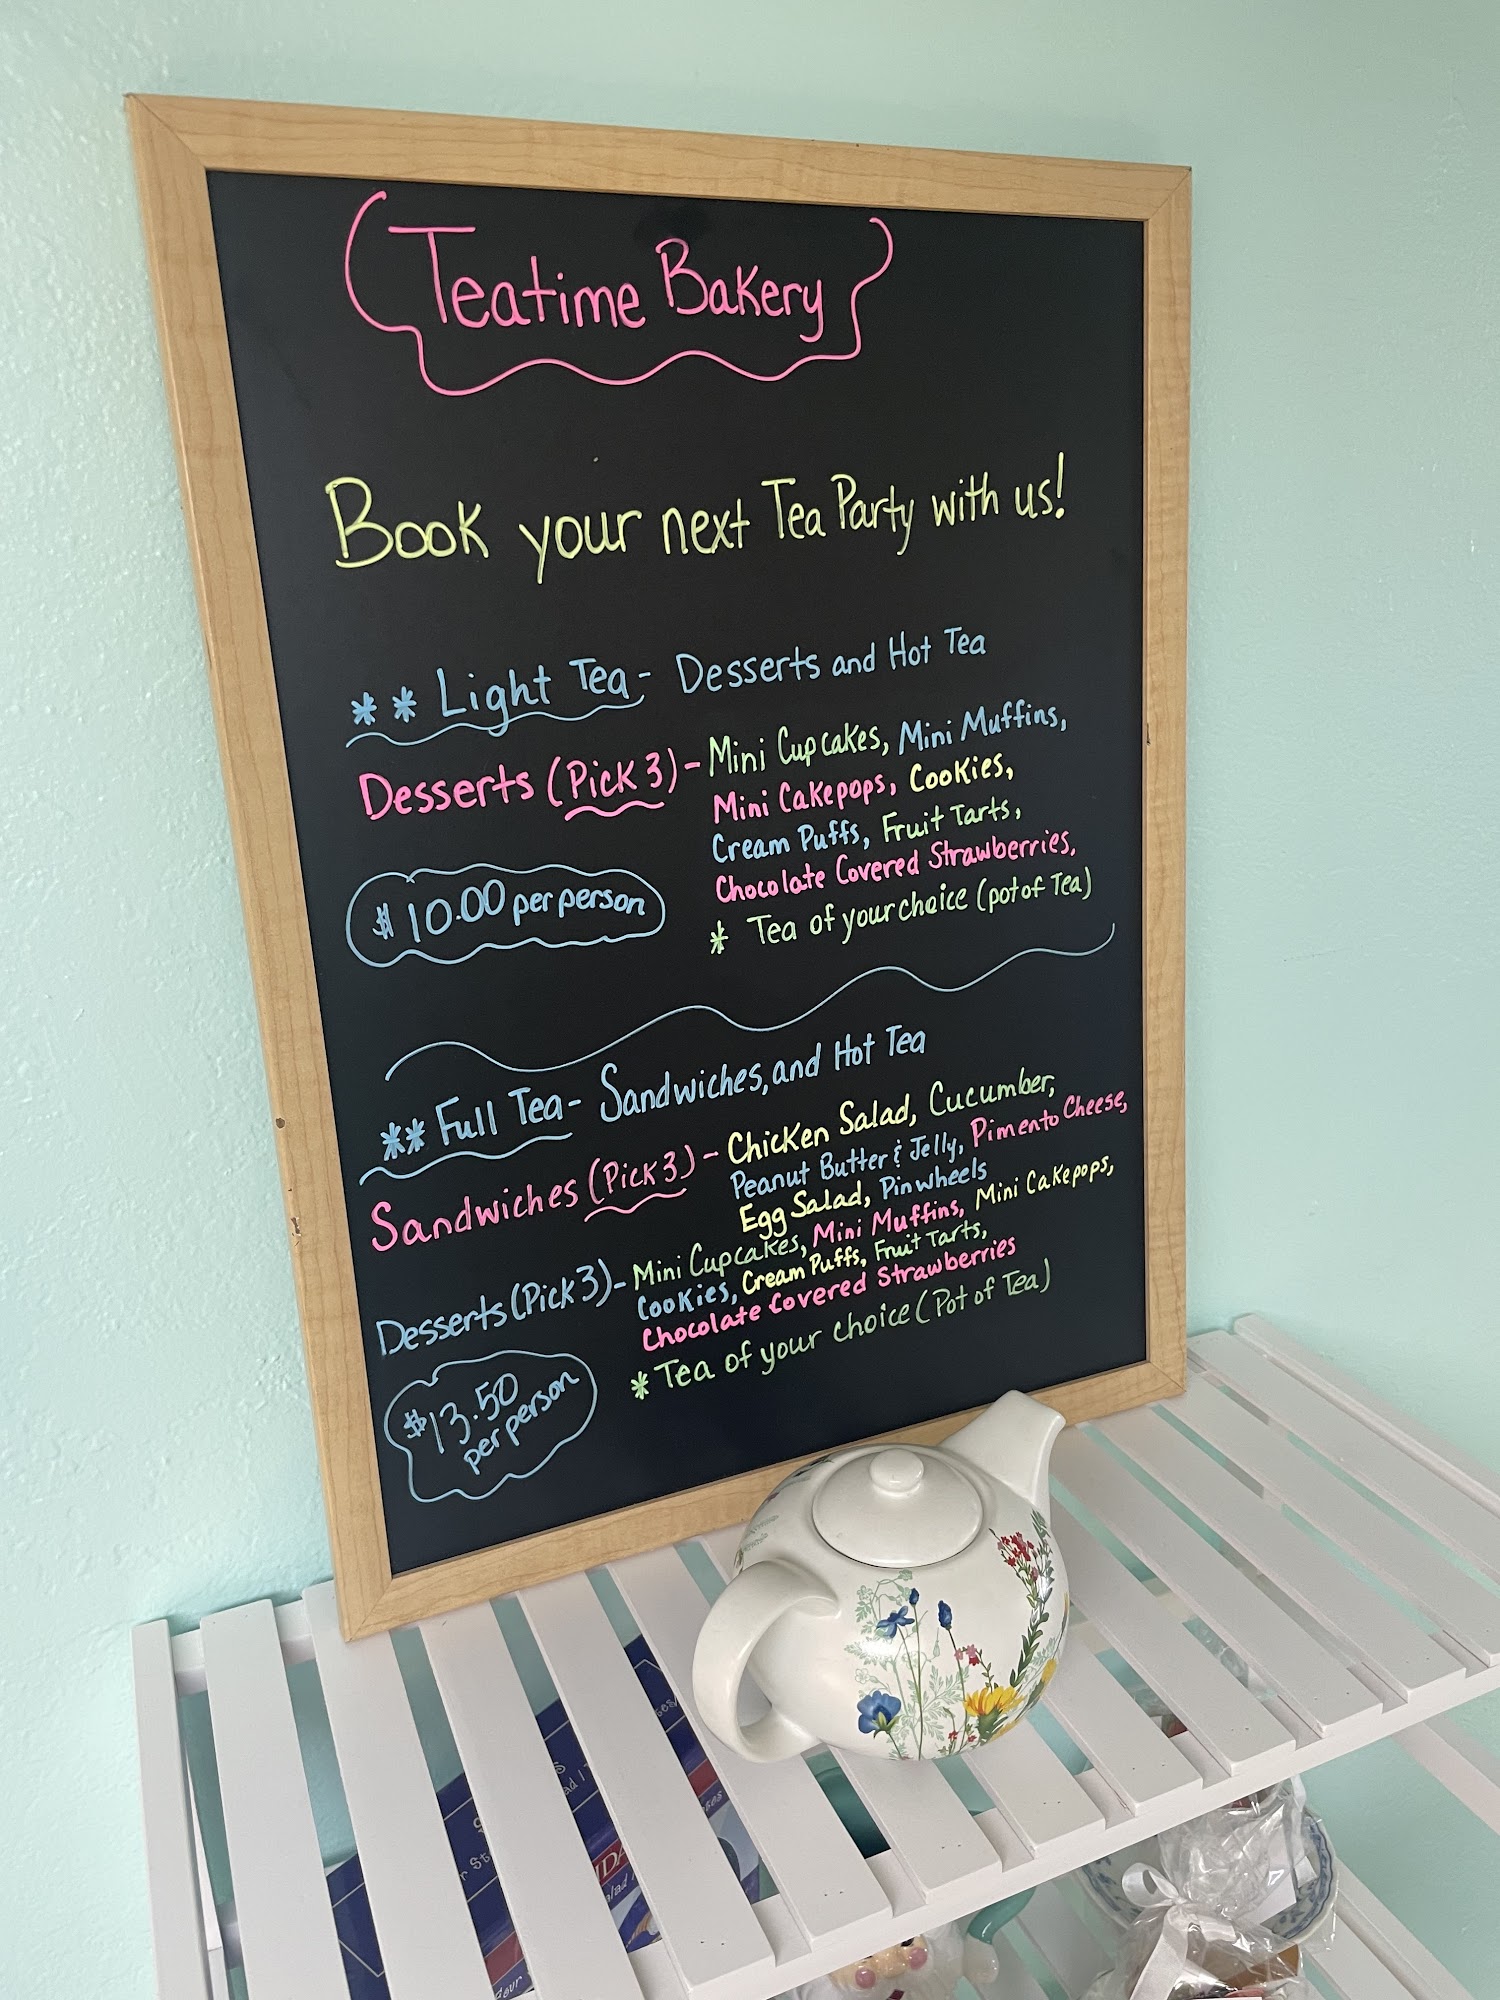 Teatime Bakery
Book your next Tea Party with us!
** Light Tea - Desserts and Hot Tea
Desserts (Pick 3) - Mini Cupcakes, Mini Muffins,
Mini Cakepops, Cookies,
Cream Puffs, Fruit Tarts,
Chocolate Covered Strawberries,
$10.00 per person
* Tea of your choice (pot of Tea)
** Full Tea - Sandwiches, and Hot Tea
Sandwiches (Pick 3) - Chicken Salad, Cucumber,
Peanut Butter & Jelly, Pimento Cheese,
Egg Salad, Pinwheels
Desserts (Pick 3) - Mini Cupcakes, Mini Muffins, Mini Cakepops,
Cookies, Cream Puffs, Fruit Tarts,
Chocolate Covered Strawberries
* Tea of your choice (Pot of Tea)
$13.50
per person